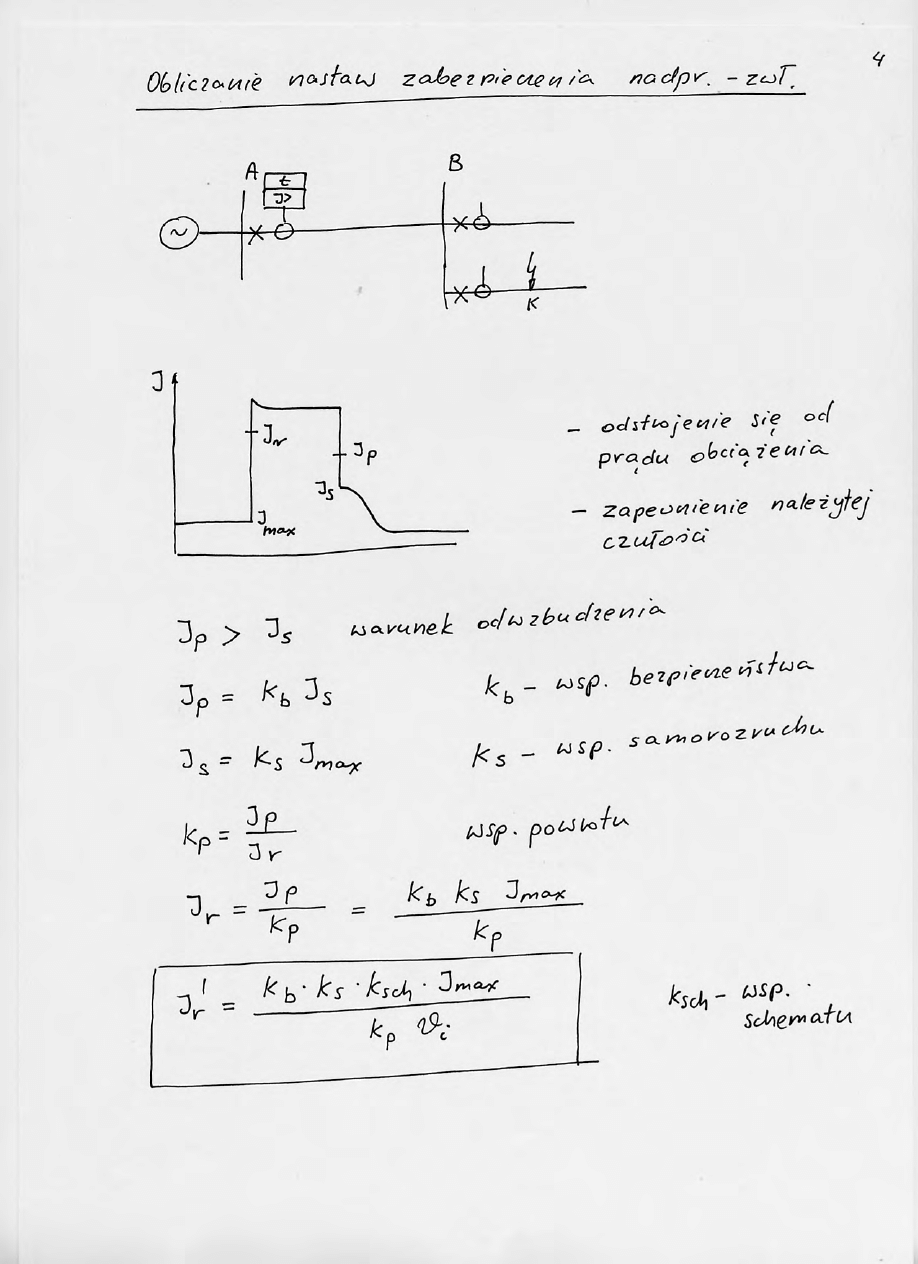 4
Obliczanie nastaw zabezpieczenia nadpr. - zwł.
A
t
J>
B
K
J
Jr
Jp
Js
Jmax
- odstrojenie się od
prądu obciążenia
- zapewnienie należytej
czułości
Jp > Js warunek odwzbudzenia
Jp = kb Js kb - wsp. bezpieczeństwa
Js = ks Jmax ks - wsp. samorozruchu
kp = Jp / Jr wsp. powrotu
Jr = Jp / kp = kb ks Jmax / kp
Jr' = kb · ks · ksch · Jmax / kp ϑi
ksch - wsp.
schematu